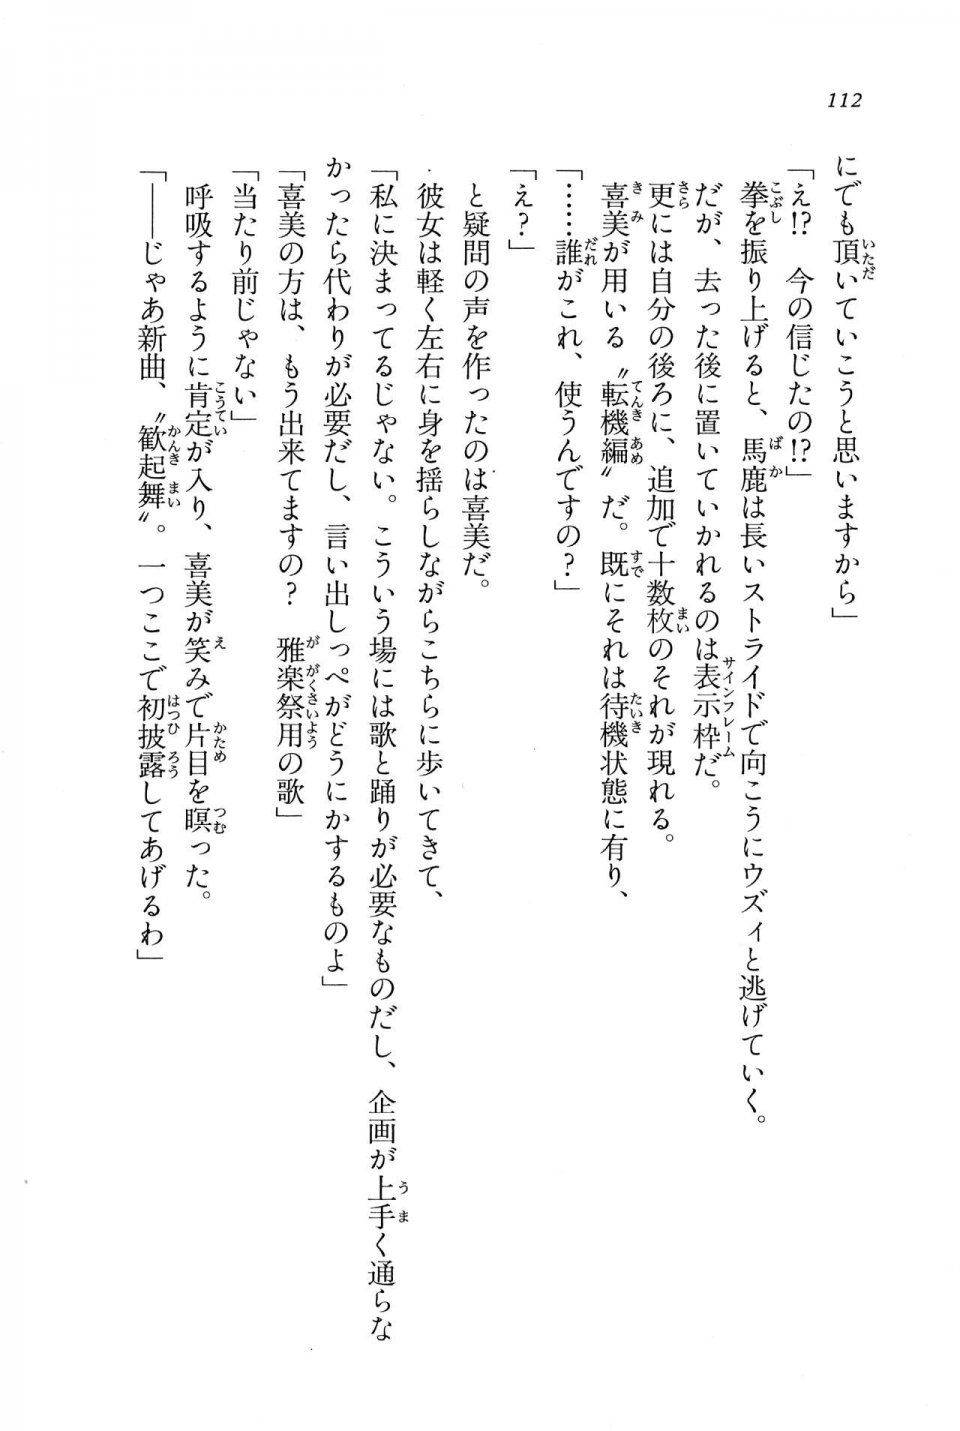 112
にでも頂いていこうと思いますから」
「え!?　今の信じたの!?」
　拳を振り上げると、馬鹿は長いストライドで向こうにウズィと逃げていく。
　だが、去った後に置いていかれるのは表示枠だ。
　更には自分の後ろに、追加で十数枚のそれが現れる。
　喜美が用いる〝転機編〟だ。既にそれは待機状態に有り、
「……誰がこれ、使うんですの？」
「え？」
　と疑問の声を作ったのは喜美だ。
　彼女は軽く左右に身を揺らしながらこちらに歩いてきて、
「私に決まってるじゃない。こういう場には歌と踊りが必要なものだし、企画が上手く通らな
かったら代わりが必要だし、言い出しっぺがどうにかするものよ」
「喜美の方は、もう出来てますの？　雅楽祭用の歌」
「当たり前じゃない」
　呼吸するように肯定が入り、喜美が笑みで片目を瞑った。
「――じゃあ新曲、〝歓起舞〟。一つここで初披露してあげるわ」